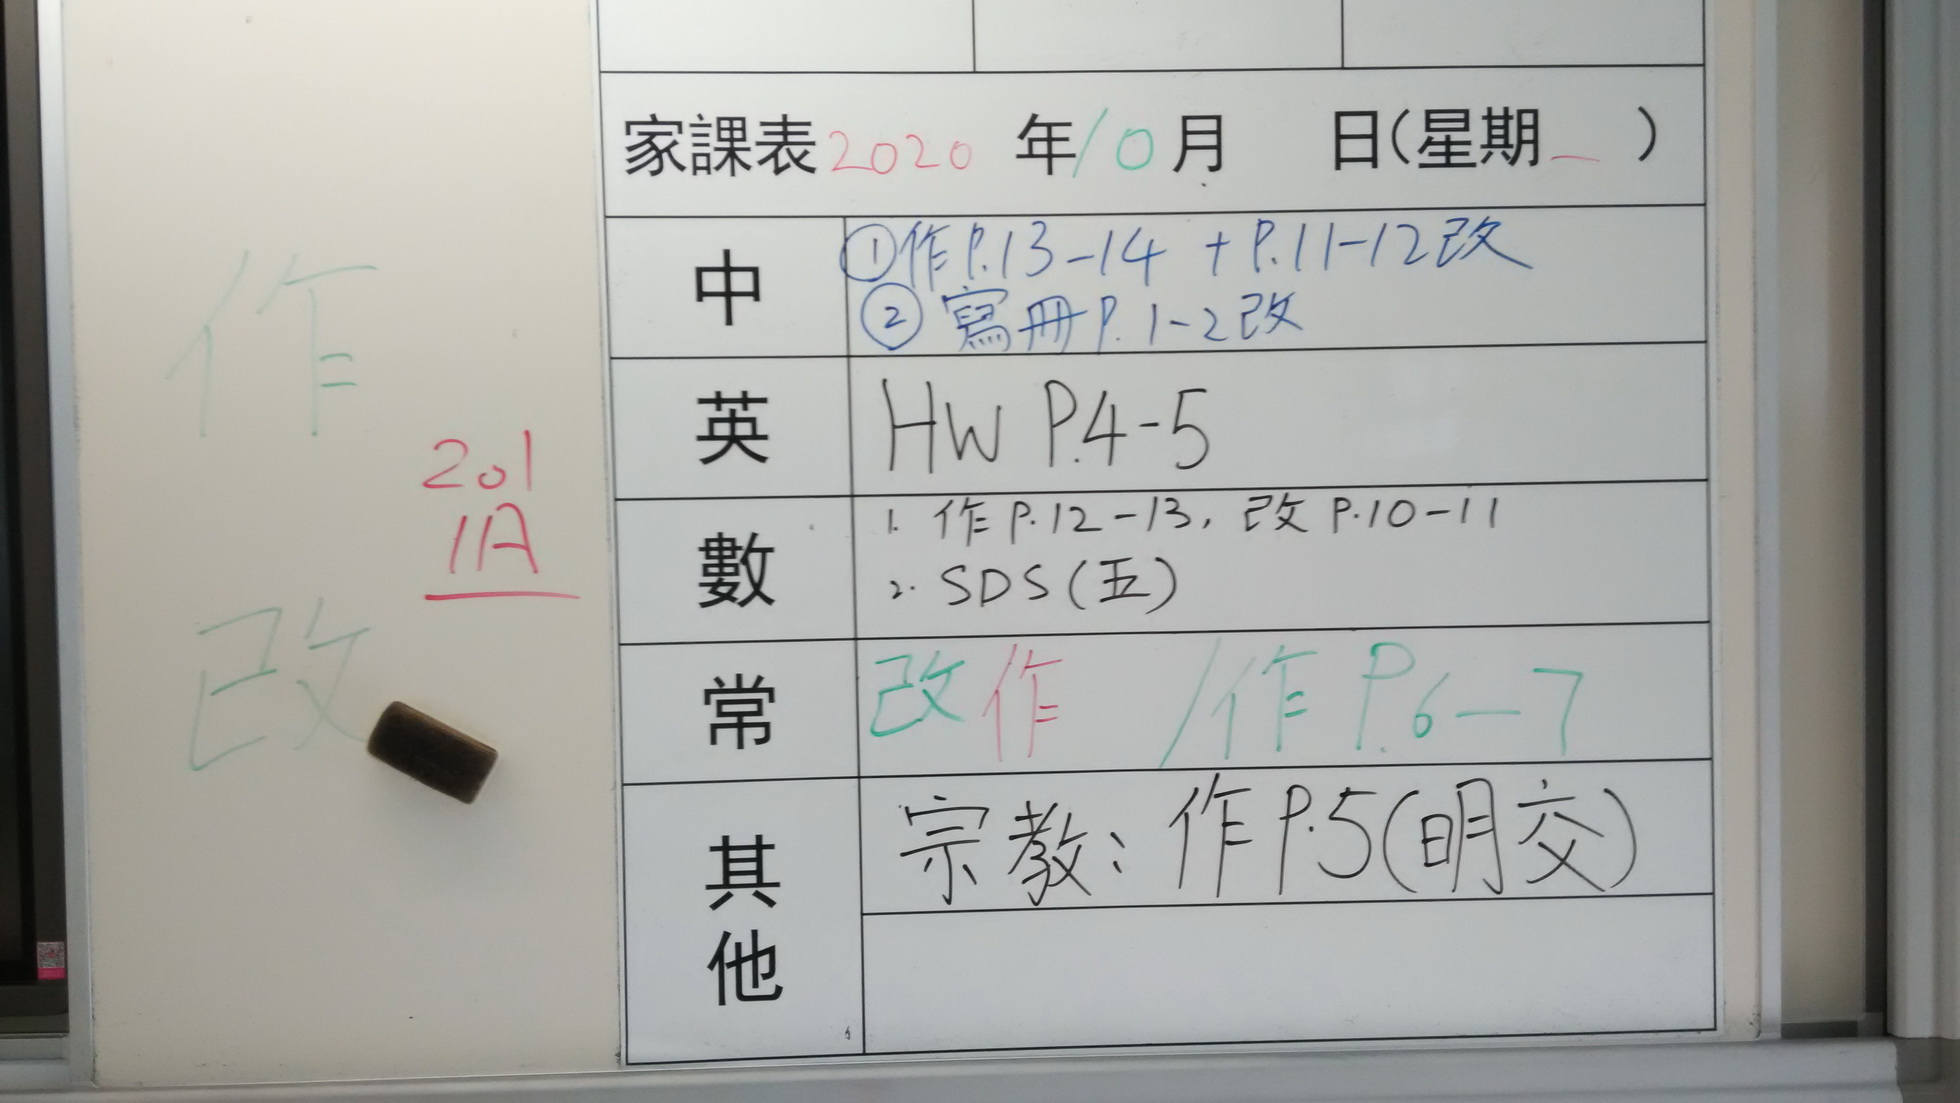 家課表2020年10月 日(星期一)
中
①作P.13-14 + P.11-12改
②寫冊P.1-2改
英
HW P.4-5
數
1. 作P.12-13, 改P.10-11
2. SDS(五)
常
改作 /作P.6-7
其他
宗教：作P.5(明交)
作
201
1A
改